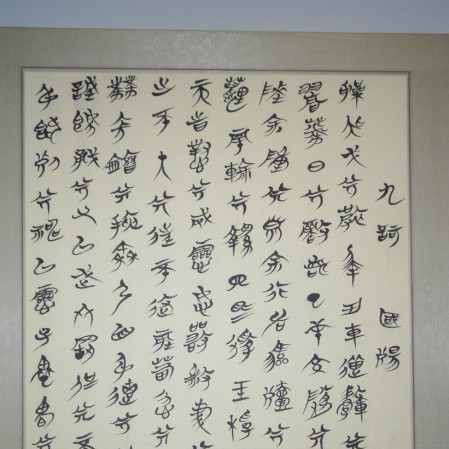 九歌 國殤
操吳戈兮被犀甲車錯轂兮
旌蔽日兮敵若云矢交墜兮
凌余陣兮躐余行左驂殪兮
霾兩輪兮縶四馬援玉枹
天時懟兮威靈怒嚴殺盡兮
出不入兮往不反平原忽兮
帶長劍兮挾秦弓首身離兮
誠既勇兮又以武終剛強兮不
身既死兮神以靈子魂魄兮